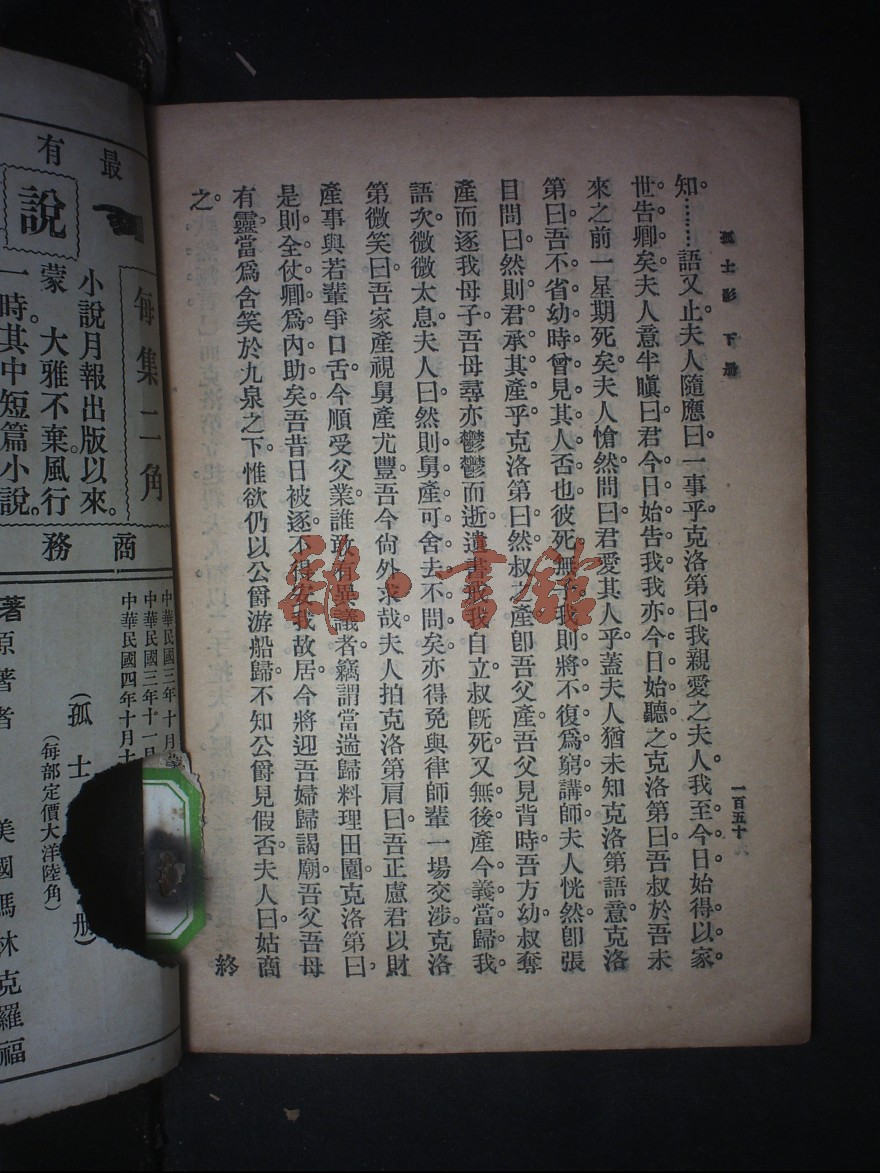 孤士影 下册
一百五十
知。………語又止。夫人隨應曰。一事乎。克洛第曰。我親愛之夫人。我至今日始得以家
世告卿矣。夫人意半瞋曰。君今日始告我。我亦今日始聽之。克洛第曰。吾叔於吾未
來之前一星期死矣。夫人愴然問曰。君愛其人乎。蓋夫人猶未知克洛第語意。克洛
第曰。吾不省幼時曾見其人否也。彼死無予我。則將不復爲窮講師。夫人恍然。卽張
目問曰。然則君承其產乎。克洛第曰。然。叔之產卽吾父產。吾父見背時。吾方幼。叔奪
產而逐我母子。吾母尋亦鬱鬱而逝。遺書戒我自立。叔旣死。又無後。產今義當歸我。
語次微微太息。夫人曰。然則舅產可舍去不問矣。亦得免與律師輩一場交涉。克洛
第微笑曰。吾家產視舅產尤豐。吾今尙外求哉。夫人拍克洛第肩曰。吾正慮君以財
產事與若輩爭口舌。今順受父業。誰敢有異議者。竊謂當遄歸料理田園。克洛第曰。
是則全仗卿爲內助矣。吾昔日被逐。不得安我故居。今將迎吾婦歸謁廟。吾父吾母
有靈。當爲含笑於九泉之下。惟欲仍以公爵游船歸。不知公爵見假否。夫人曰。姑商
之。
終
最
有
說
每集二角
小說月報出版以來。
蒙 大雅不棄風行
一時。其中短篇小說。
商
務
中華民國三年十月
中華民國三年十一月
中華民國四年十月
(孤士
册)
(每部定價大洋陸角)
原著者 美國馬林克羅福
著